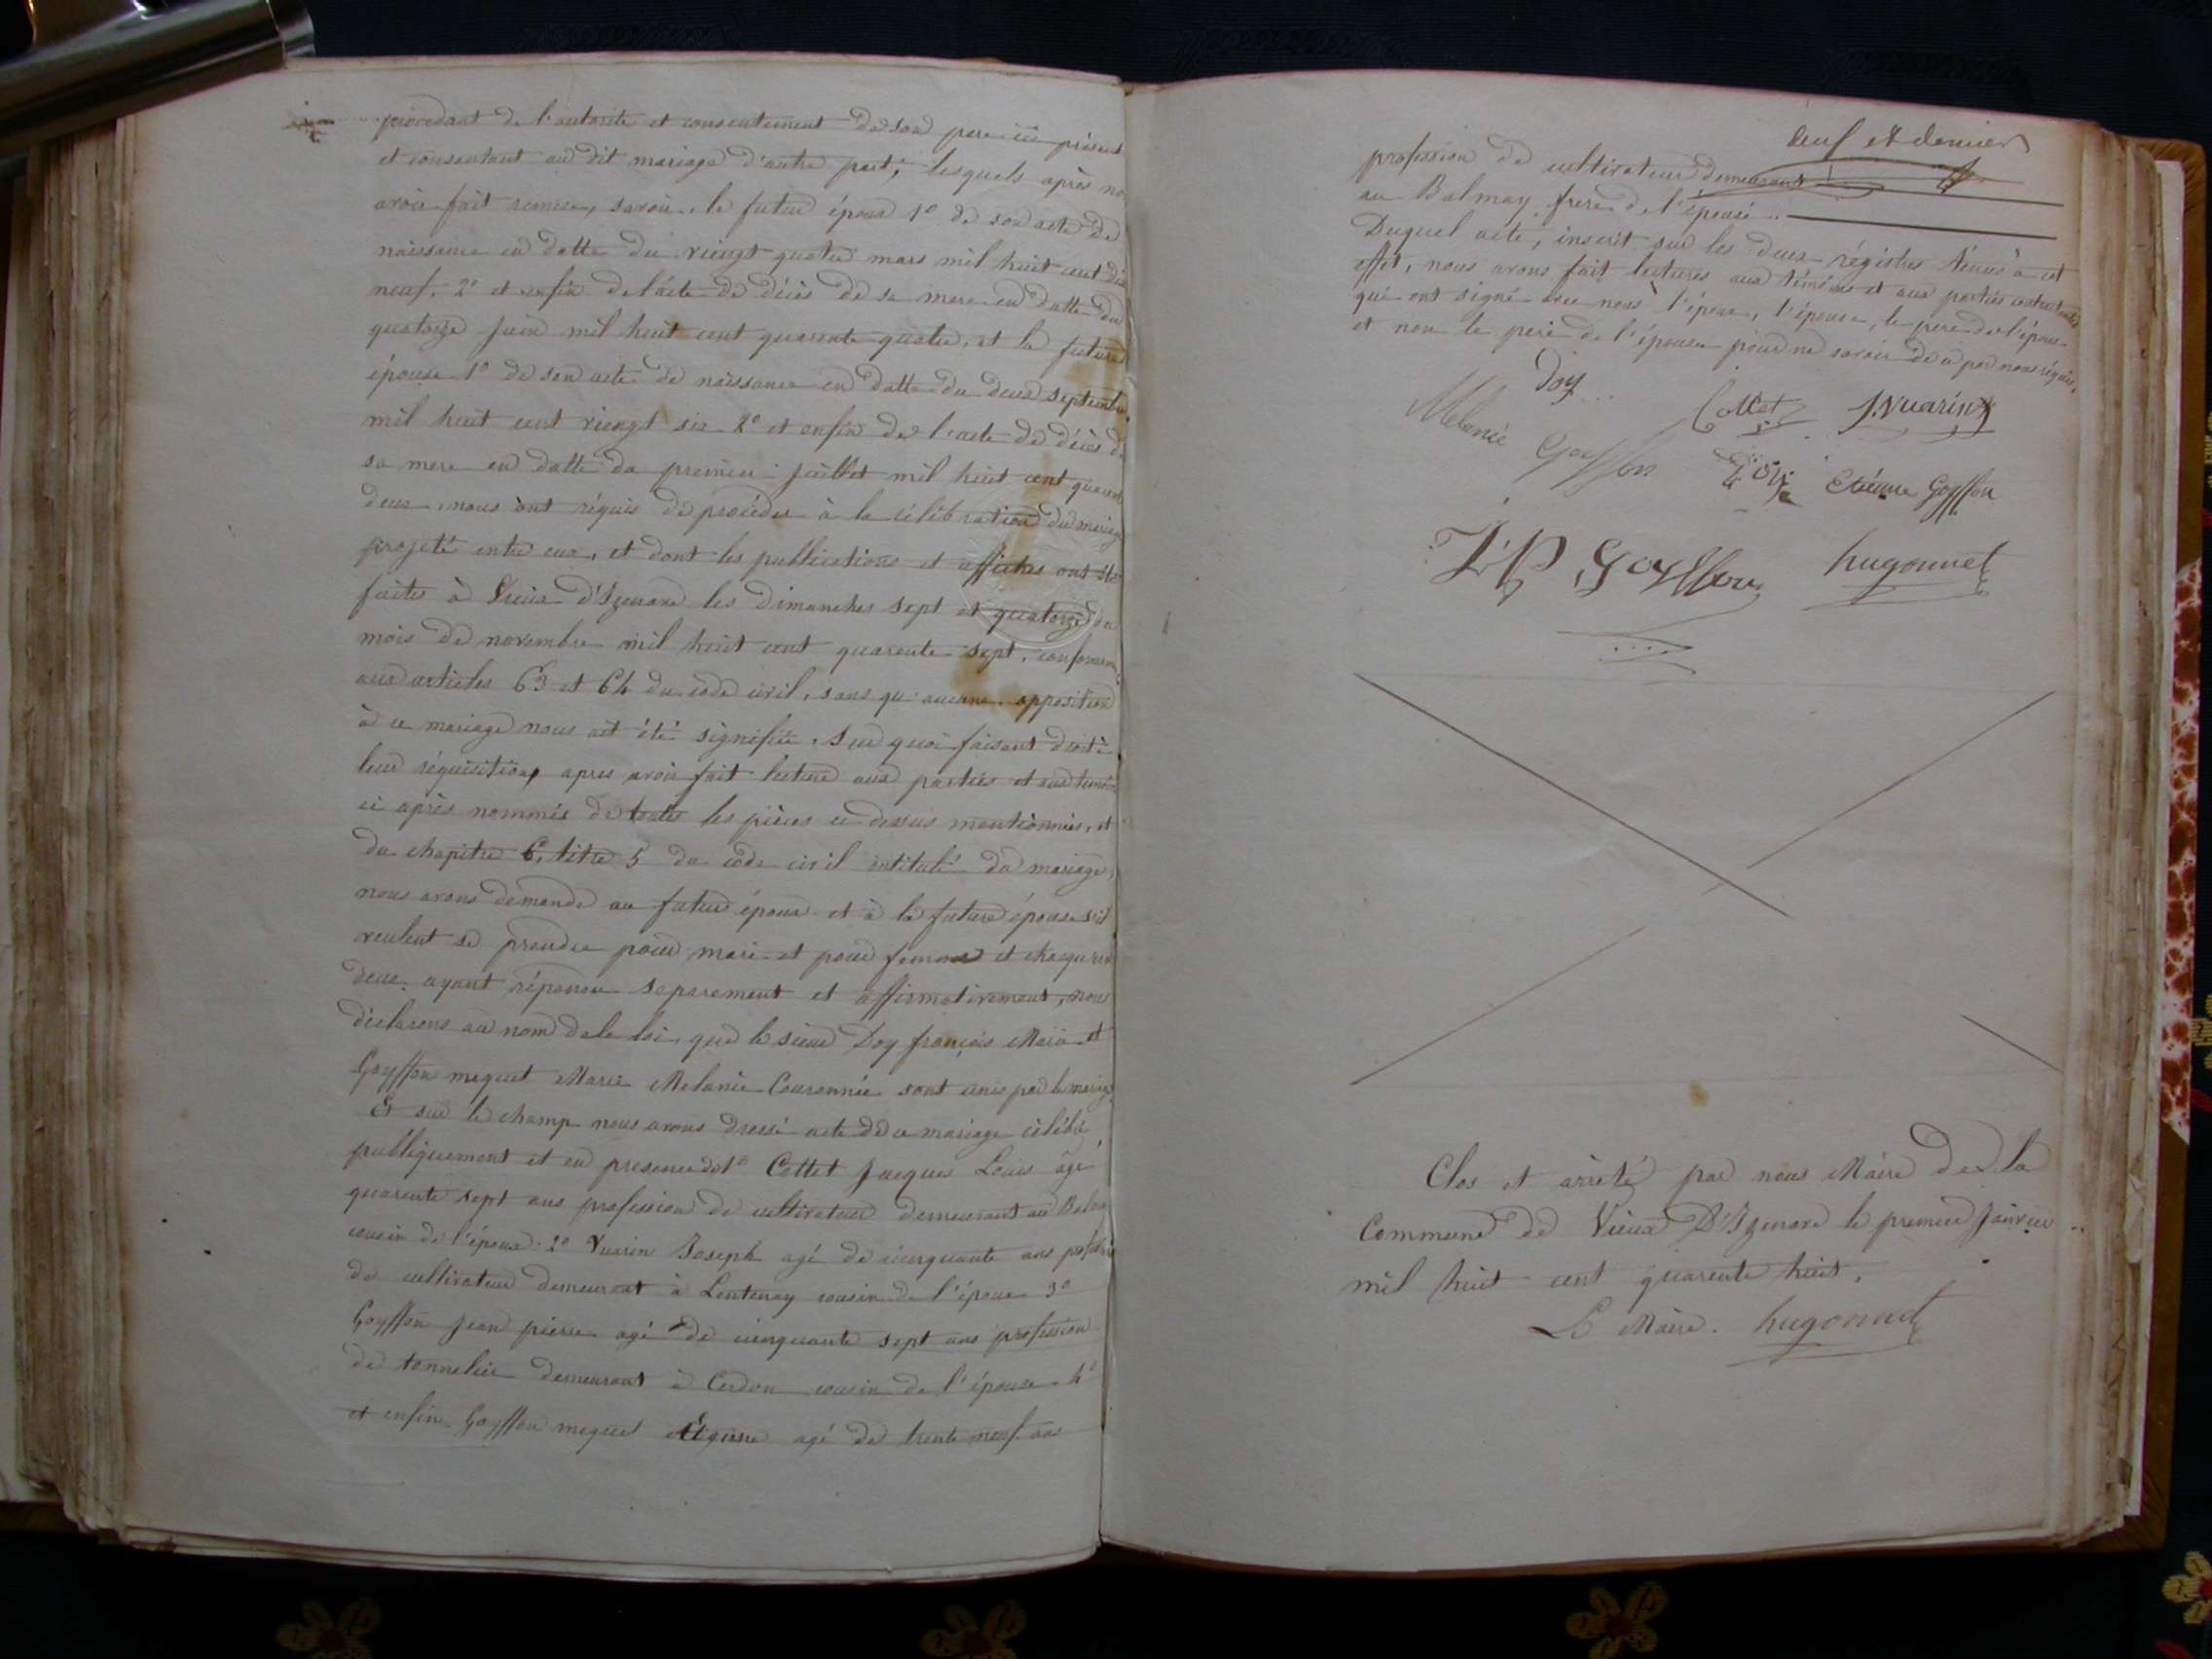 procedant de l'autorité et consentement de son pere ici présent
et consentant au dit mariage d'autre part, lesquels après nous
avoir fait remise, savoir, le futur époux 1º de son acte de
naissance en datte du vingt quatre mars mil huit cent dix
neuf, 2º et enfin de l'acte de décès de sa mere en datte du
quatorze juin mil huit cent quarante quatre, et la future
épouse 1º de son acte de naissance en datte du deux septembre
mil huit cent vingt six 2º et enfin de l'acte de décès de
sa mere en datte du premier juillet mil huit cent quarante
deux, nous ont réquis de procéder à la célébration du mariage
projeté entre eux, et dont les publications et affiches ont été
faites à Vieux d'Izenave les dimanches sept et quatorze du
mois de novembre mil huit cent quarante sept, conformement
aux articles 63 et 64 du code civil, sans qu'aucune opposition
à ce mariage nous ait été signifiée, Sur quoi faisant droit à
leur réquisition, apres avoir fait lecture aux parties et aux temoins
ci après nommés de toutes les pièces ci dessus mentionnées, et
du chapitre 6, titre 5 du code civil intitulé du mariage,
nous avons demandé au futur époux et à la future épouse s'il
veulent se prendre pour mari et pour femme et chaqu'un
deux ayant répondu separement et affirmativement, nous
déclarons au nom de la loi, que le sieur Doy françois Marie et
Goyffon meguet Marie Melanie Couronnée sont unis par le mariage
Et sur le champ nous avons dressé acte de ce mariage célébré
publiquement et en presence de 1º Cottet Jacques Louis âgé
quarante sept ans profession de cultivateur demeurant au Balmay
cousin de l'époux 2º Vuarin Joseph agé de cinquante ans profession
de cultivateur demeurant à Lentenay cousin de l'époux 3º
Goyffon Jean pierre agé de cinquante sept ans profession
de tonnelier demeurant à Cerdon cousin de l'épouse 4º
et enfin Goyffon meguet Etienne agé de trente neuf ans
neuf et dernier
profession de cultivateur demeurant
au Balmay frere de l'épouse.
Duquel acte, inscrit sur les deux régistres ténus à cet
effet, nous avons fait lectures aux témoins et aux parties contractantes
qui ont signé avec nous l'époux, l'épouse, le pere de l'époux
et non le pere de l'épouse pour ne savoir de ce par nous réquis.
Doy Cottet J. Vuarin
Melanie Goyffon Doy Etienne Goyffon
J. P Goyffon hugonnet
Clos et arrêté par nous Maire de la
Commune de Vieux D'Izenave le premier Janvier
mil huit cent quarente huit.
Le Maire. hugonnet